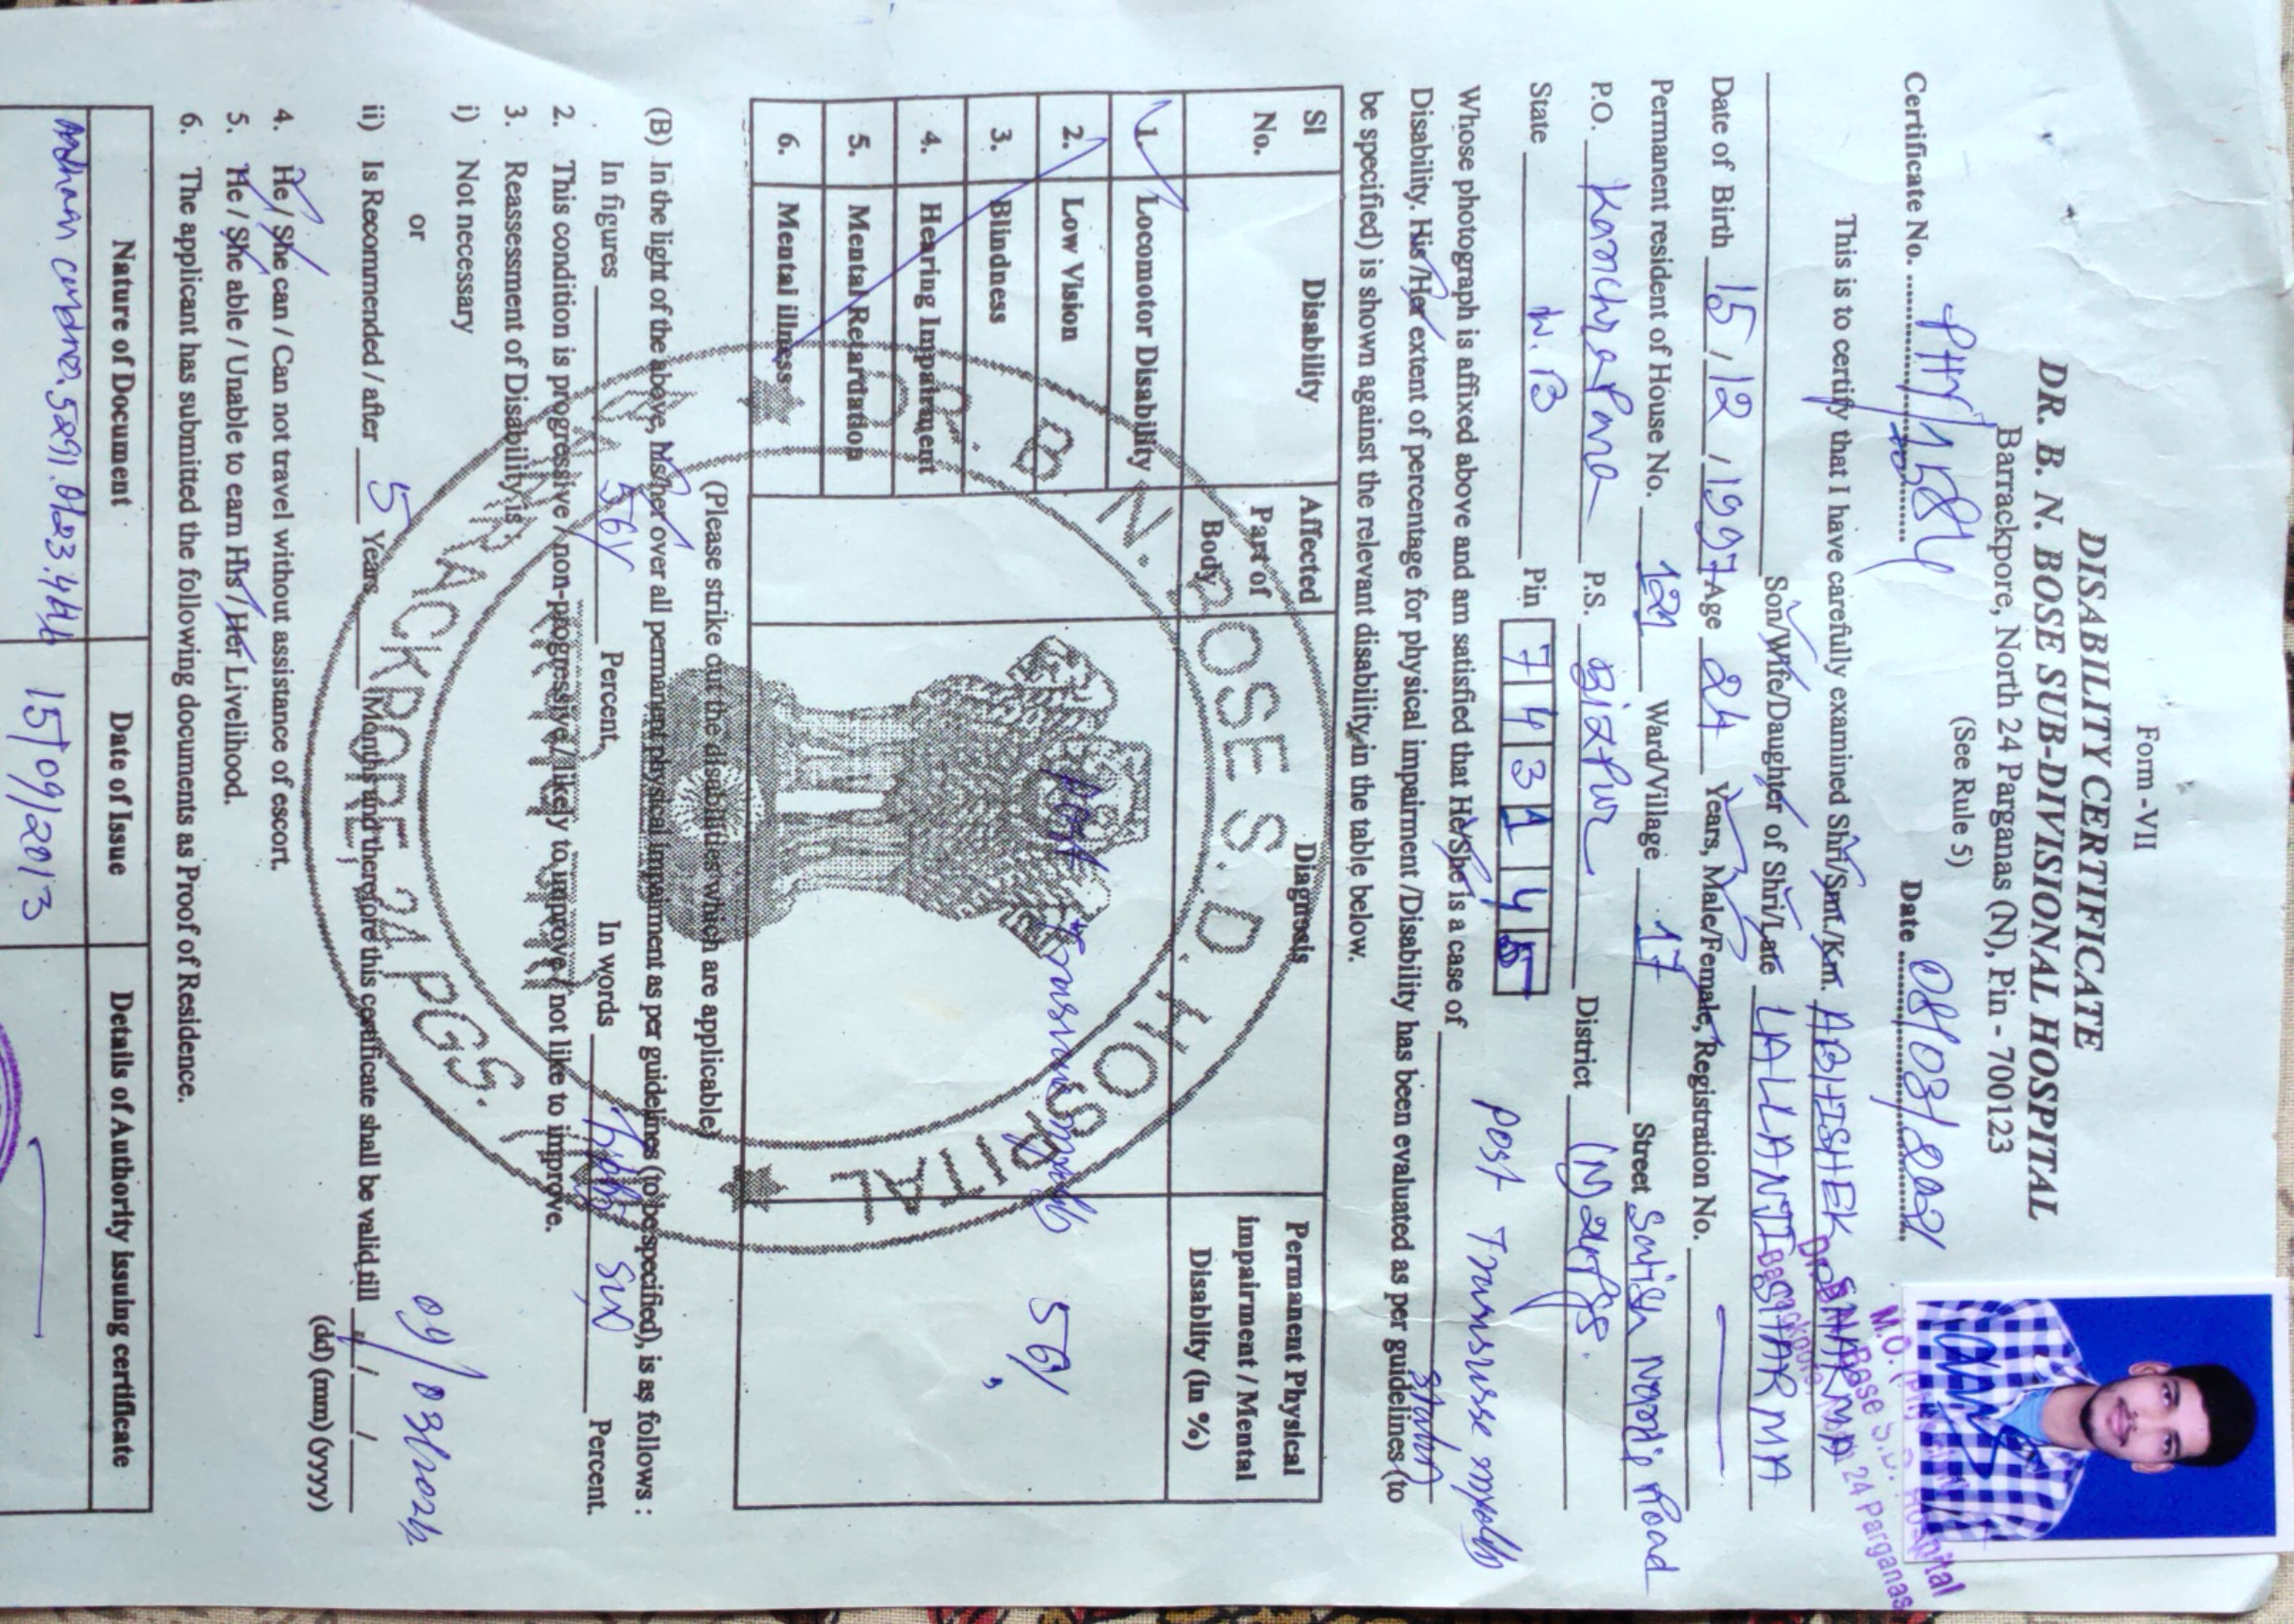 Form -VII
DISABILITY CERTIFICATE
DR. B. N. BOSE SUB-DIVISIONAL HOSPITAL
Barrackpore, North 24 Parganas (N), Pin - 700123
(See Rule 5)
Certificate No. Date 08/03/2021
M.O.
24 Parganas
This is to certify that I have carefully examined Shri/Smt./Km. ABHISHEK SHARMA
Son/Wife/Daughter of Shri/Late LALLANJI SHARMA
Date of Birth 15/12/1997 Age 24 Years, Male/Female, Registration No.
Permanent resident of House No. 121 Ward/Village 17 Street Satish Nandi Road
P.O. Kanchrapara P.S. Bizpur District (N) 24 Pgs.
State W.B Pin 743145
Whose photograph is affixed above and am satisfied that He/She is a case of Post Transverse
Disability. His/Her extent of percentage for physical impairment /Disability has been evaluated as per guidelines (to
be specified) is shown against the relevant disability in the table below.
Sl No. Disability Affected Part of Body Diagnosis Permanent Physical impairment / Mental Disablity (in %)
1. Locomotor Disability Post Transverse 56%
2. Low Vision
3. Blindness
4. Hearing Impairment
5. Mental Retardation
6. Mental illness
DR. B. N. BOSE S. D. HOSPITAL
BARRACKPORE, 24 PGS. (N)
(Please strike out the disabilities which are applicable)
(B) In the light of the above, his/her over all permanent physical impairment as per guidelines (to be specified), is as follows :
In figures 56% Percent, In words Fifty Six Percent.
2. This condition is progressive / non-progressive / likely to improve / not like to improve.
3. Reassessment of Disability is
i) Not necessary
or
09/03/2026
ii) Is Recommended / after 5 Years Months and therefore this certificate shall be valid till / /
(dd) (mm) (yyyy)
4. He / She can / Can not travel without assistance of escort.
5. He / She able / Unable to earn His / Her Livelihood.
6. The applicant has submitted the following documents as Proof of Residence.
Nature of Document Date of Issue Details of Authority issuing certificate
5291.0123.4414 15/09/2013